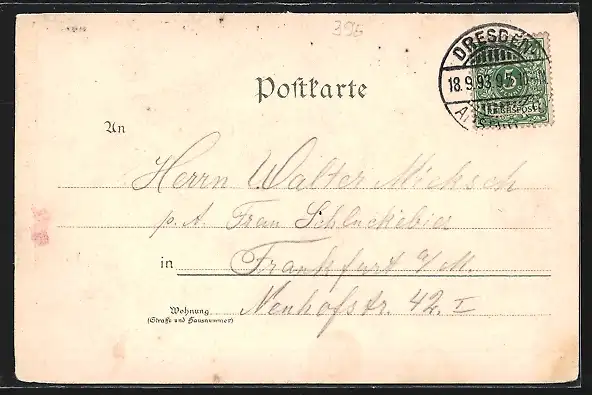 396
DRESDEN
18.9.93
5
REICHSPOST
Postkarte
An
Herrn Walter Mieksch
p. A. Frau Schluckebier
in Frankfurt a/M.
Wohnung Neuhofstr. 42. I
(Straße und Hausnummer)